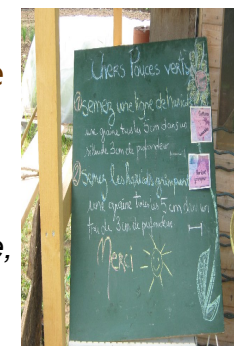 e
Chers Pouces verts,
① semez une ligne de haricots
une graine tous les 5 cm dans un
sillon de 2cm de profondeur
② Semez les haricots grimpants
une graine tous les 5 cm dans un
trou de 3cm de profondeur
Merci
e,